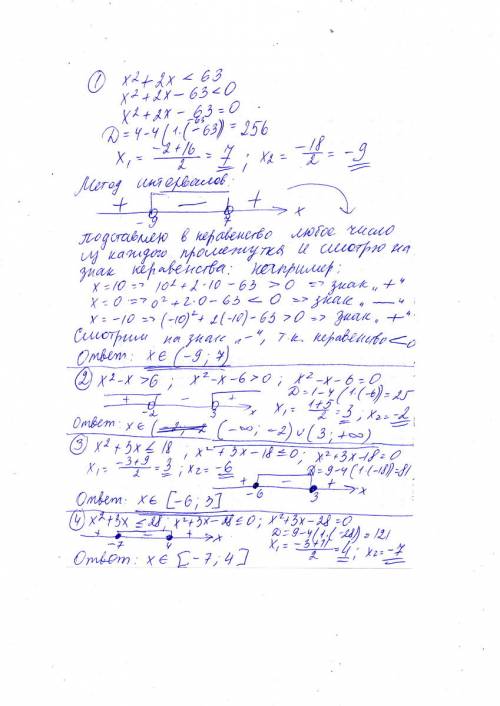 ① x²+2x < 63
x²+2x-63<0
x²+2x-63=0
D=4-4(1·(-63))=256
x₁ = (-2+16)/2 = 7; x₂ = -18/2 = -9
Метод интервалов:
+ -9 — 7 + x
подставляю в неравенство любое число
из каждого промежутка и смотрю на
знак неравенства: например:
x=10 => 10²+2·10-63 >0 => знак „+"
x=0 => 0²+2·0-63 < 0 => знак „—"
x=-10 => (-10)²+2(-10)-63>0 => знак „+"
Смотрим на знак „-", т.к. неравенство<0
Ответ: x∈(-9; 7)
② x²-x>6; x²-x-6>0; x²-x-6=0
D=1-4(1·(-6))=25
+ -2 - 3 + x
x₁ = (1+5)/2 = 3; x₂=-2
Ответ: x∈ (-∞; -2)∪(3; +∞)
③ x²+3x≤18; x²+3x-18≤0; x²+3x-18=0
x₁ = (-3+9)/2 = 3; x₂=-6
D=9-4(1·(-18))=81
+ -6 - 3 + x
Ответ: x∈ [-6; 3]
④ x²+3x ≤28; x²+3x-28≤0; x²+3x-28=0
+ -7 - 4 + x
D=9-4(1·(-28))=121
x₁ = (-3+11)/2 = 4; x₂=-7
Ответ: x∈ [-7; 4]